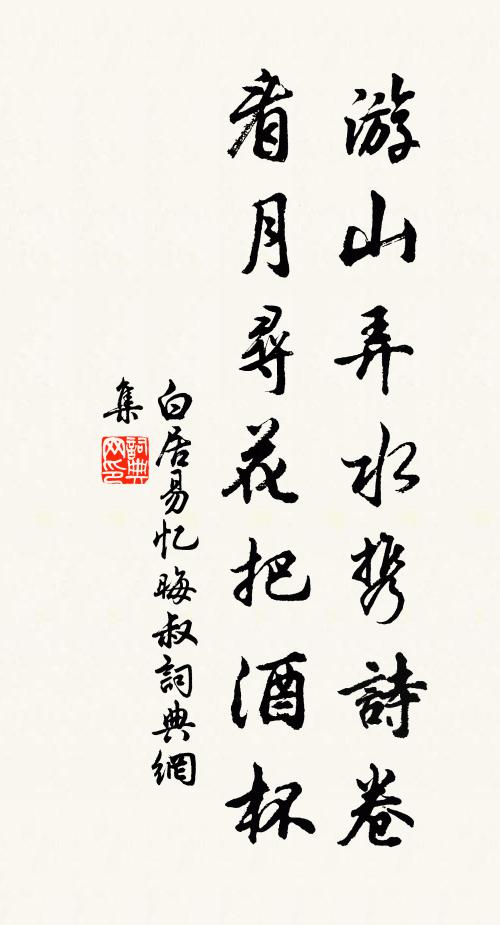 游山弄水携詩卷
看月尋花把酒杯
白居易忆晦叔詞典網
集
詞典网印